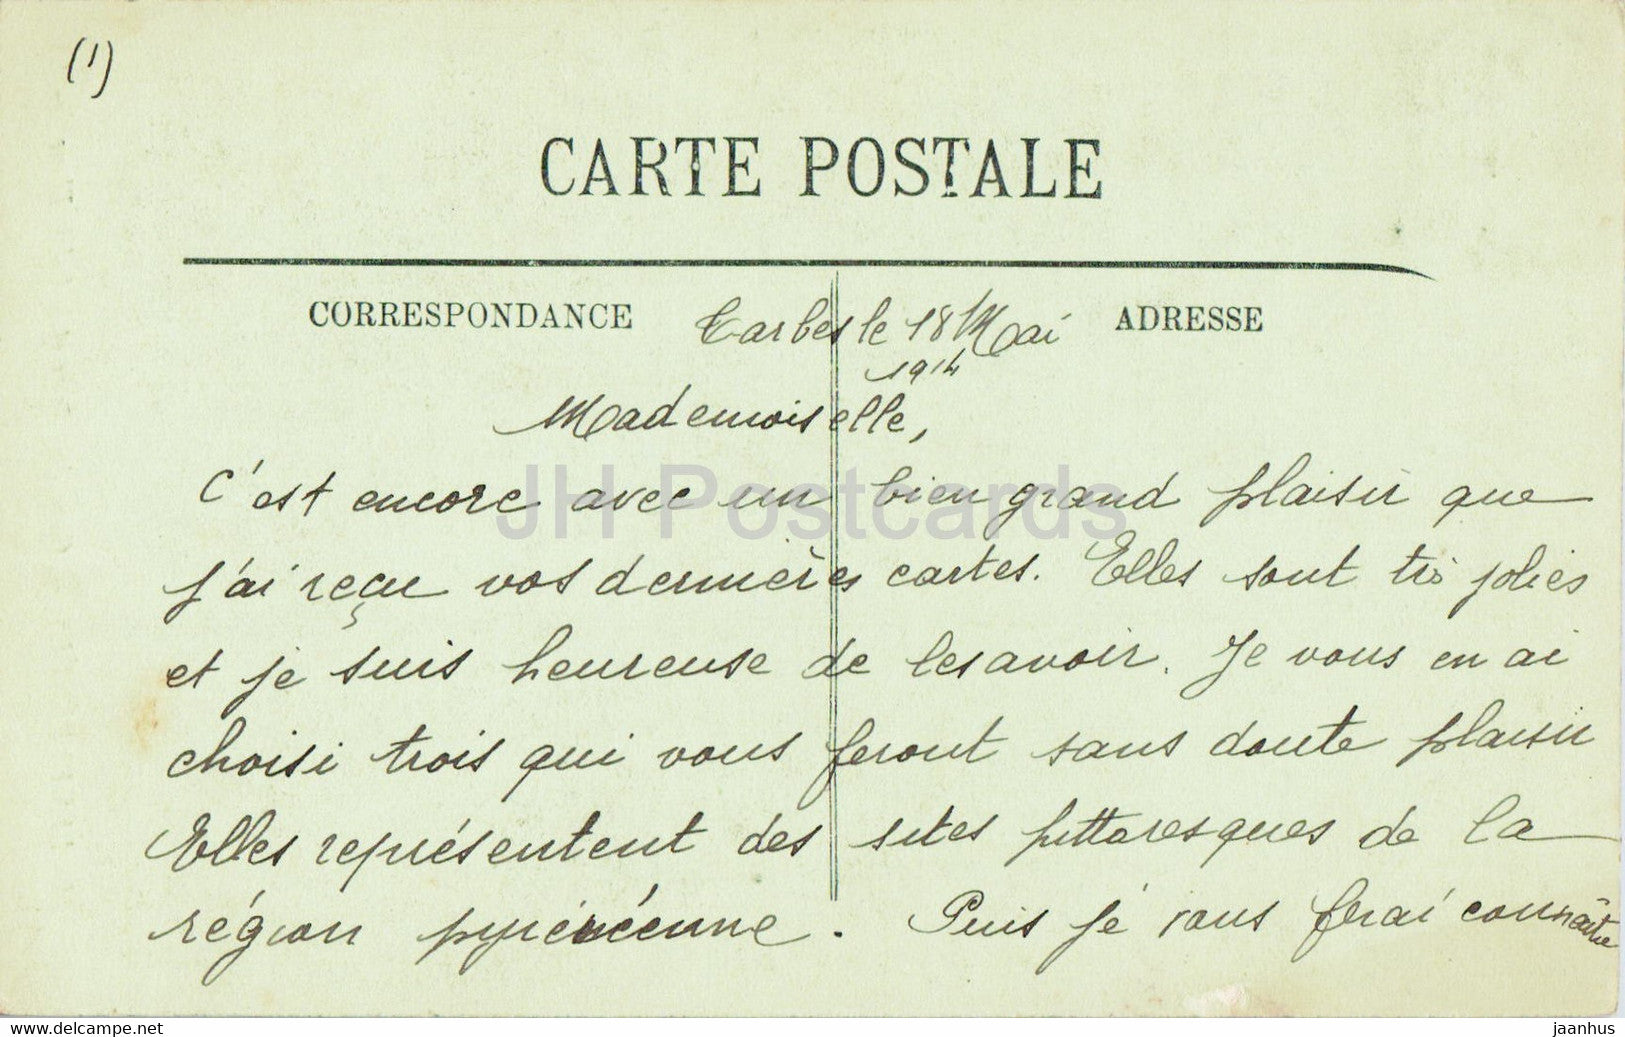 (1)
CARTE POSTALE
CORRESPONDANCE
ADRESSE
Tarbes le 18 Mai
1914
Mademoiselle,
C'est encore avec un bien grand plaisir que
j'ai reçu vos dernières cartes. Elles sont très jolies
et je suis heureuse de les avoir. Je vous en ai
choisi trois qui vous feront sans doute plaisir
Elles représentent des sites pittoresques de la
région pyrénéenne. Puis je vous ferai connaître
JH Postcards
www.delcampe.net
jaanhus